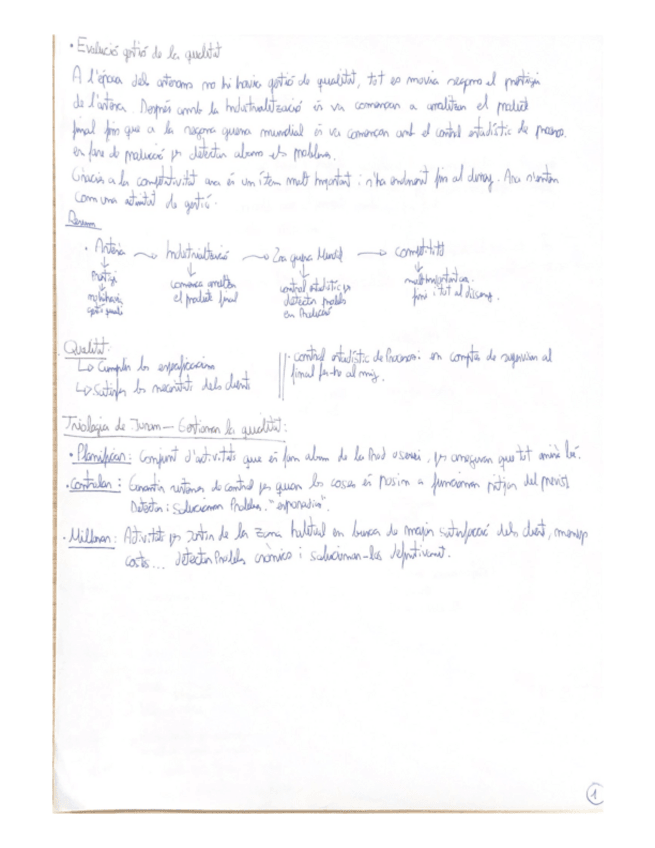 • Evolució gestió de la qualitat
A l'època dels artesans no hi havia gestió de qualitat, tot es movia segons el prestigi
de l'artesà. Després amb la Industrialització es va començar a analitzar el producte
final fins que a la segona guerra mundial es va començar amb el control estadístic de procesos.
en fase de producció per detectar abans els problemes.
Gràcies a la competitivitat ara és un ítem molt important i s'ha endinsat fins al disseny. Ara s'entén
com una activitat de gestió.
Resum
• Artesà → Industrialització → 2on guerra Mundial → competitivitat
↓ ↓ ↓ ↓
Prestigi comença analitzar control estadístic per molt important
no hi havia el producte final detectar problemes fins i tot al disseny.
gestió qualitat en Producció
Qualitat:
↳ Cumplir les especificacions
↳ Satisfer les necessitats dels clients
• control estadístic de Processos: en comptes de supervisar al
final fer-ho al mig.
Triologia de Juran — Gestionar la qualitat:
• Planificar: Conjunt d'activitats que es fan abans de la Prod o servei, per assegurar que tot anirà bé.
• Controlar: Garantir sistemes de control per quan les coses es posin a funcionar pitjor del previst
Detectar i solucionar Problemes "esporàdics".
• Millorar: Activitats per sortir de la zona habitual en busca de major satisfacció dels client, menys
costos... detectar Problemes crònics i solucionar-los definitivament.
1